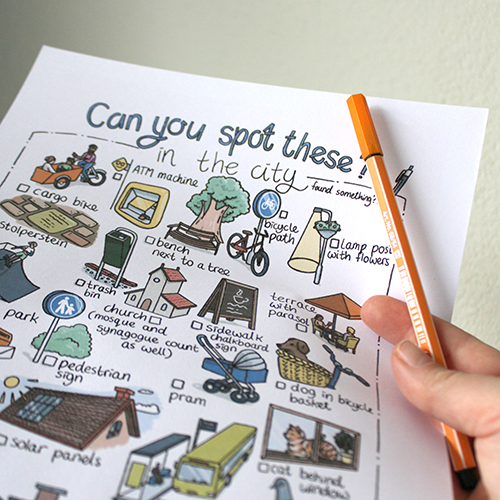 Can you spot these?
in the city
found something?
cargo bike
ATM machine
bench
next to a tree
bicycle
path
lamp post
with flowers
Stolperstein
trash
bin
church
(mosque and
synagogue count
as well)
sidewalk
chalkboard
sign
terrace
with
parasol
park
pedestrian
sign
pram
dog in bicycle
basket
solar panels
cat behind
window